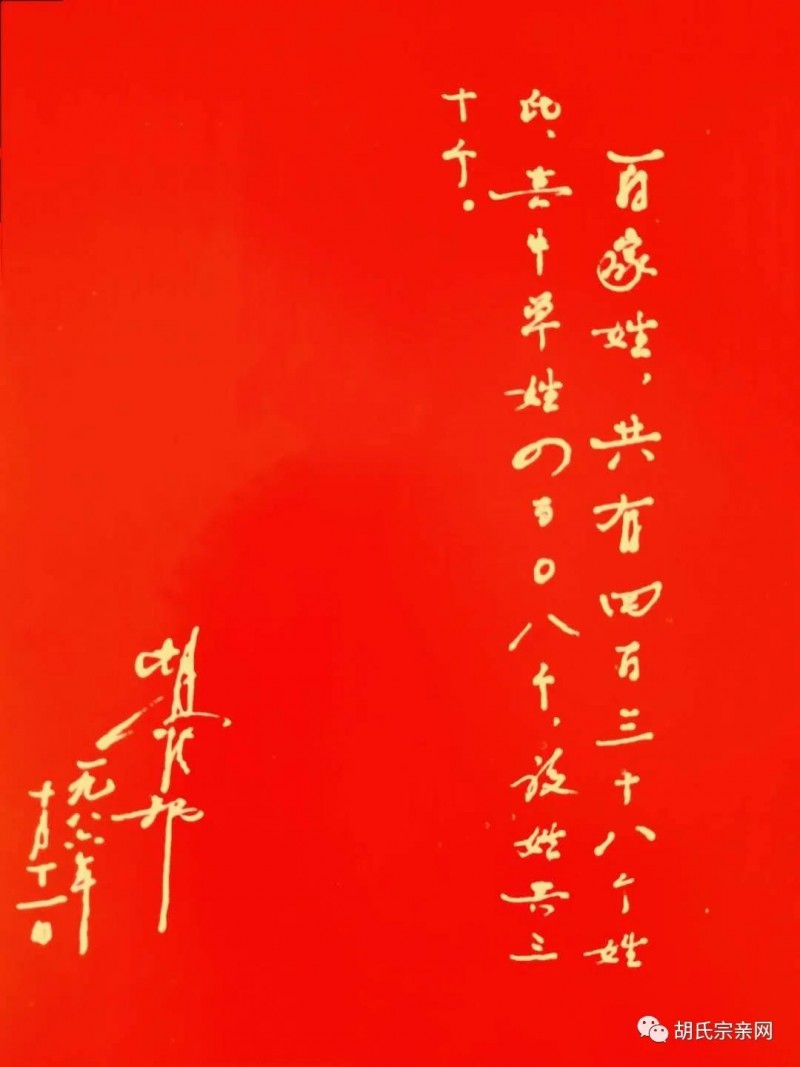 百家姓，共有四百三十八个姓
氏、其中单姓四百〇八个，复姓共三
十个。
胡耀邦
一九八六年
十月十一日
胡氏宗亲网